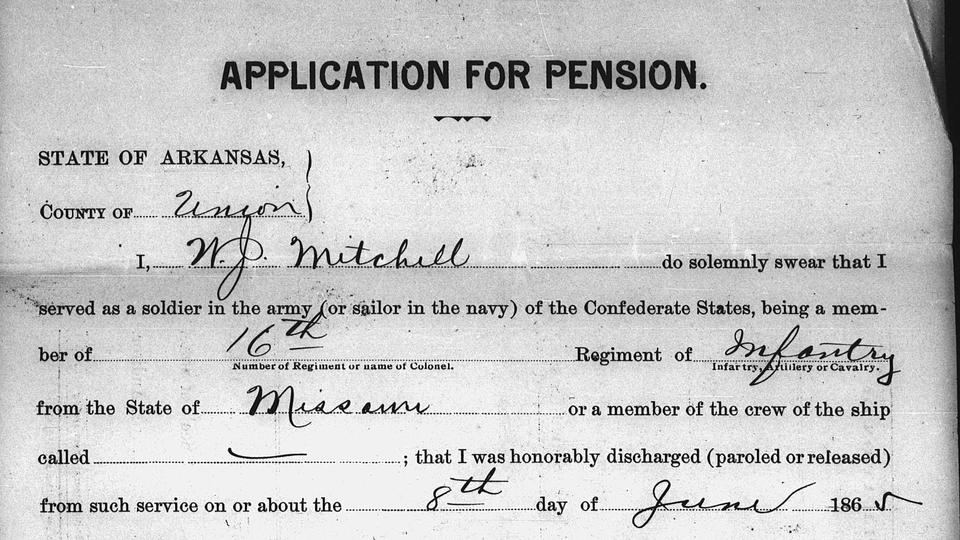 APPLICATION FOR PENSION.
STATE OF ARKANSAS,
COUNTY OF Union
I, W. J. Mitchell do solemnly swear that I
served as a soldier in the army (or sailor in the navy) of the Confederate States, being a mem-
ber of 16th Regiment of Infantry
Number of Regiment or name of Colonel. Infartry, Artillery or Cavalry.
from the State of Missouri or a member of the crew of the ship
called — ; that I was honorably discharged (paroled or released)
from such service on or about the 8th day of June 1865